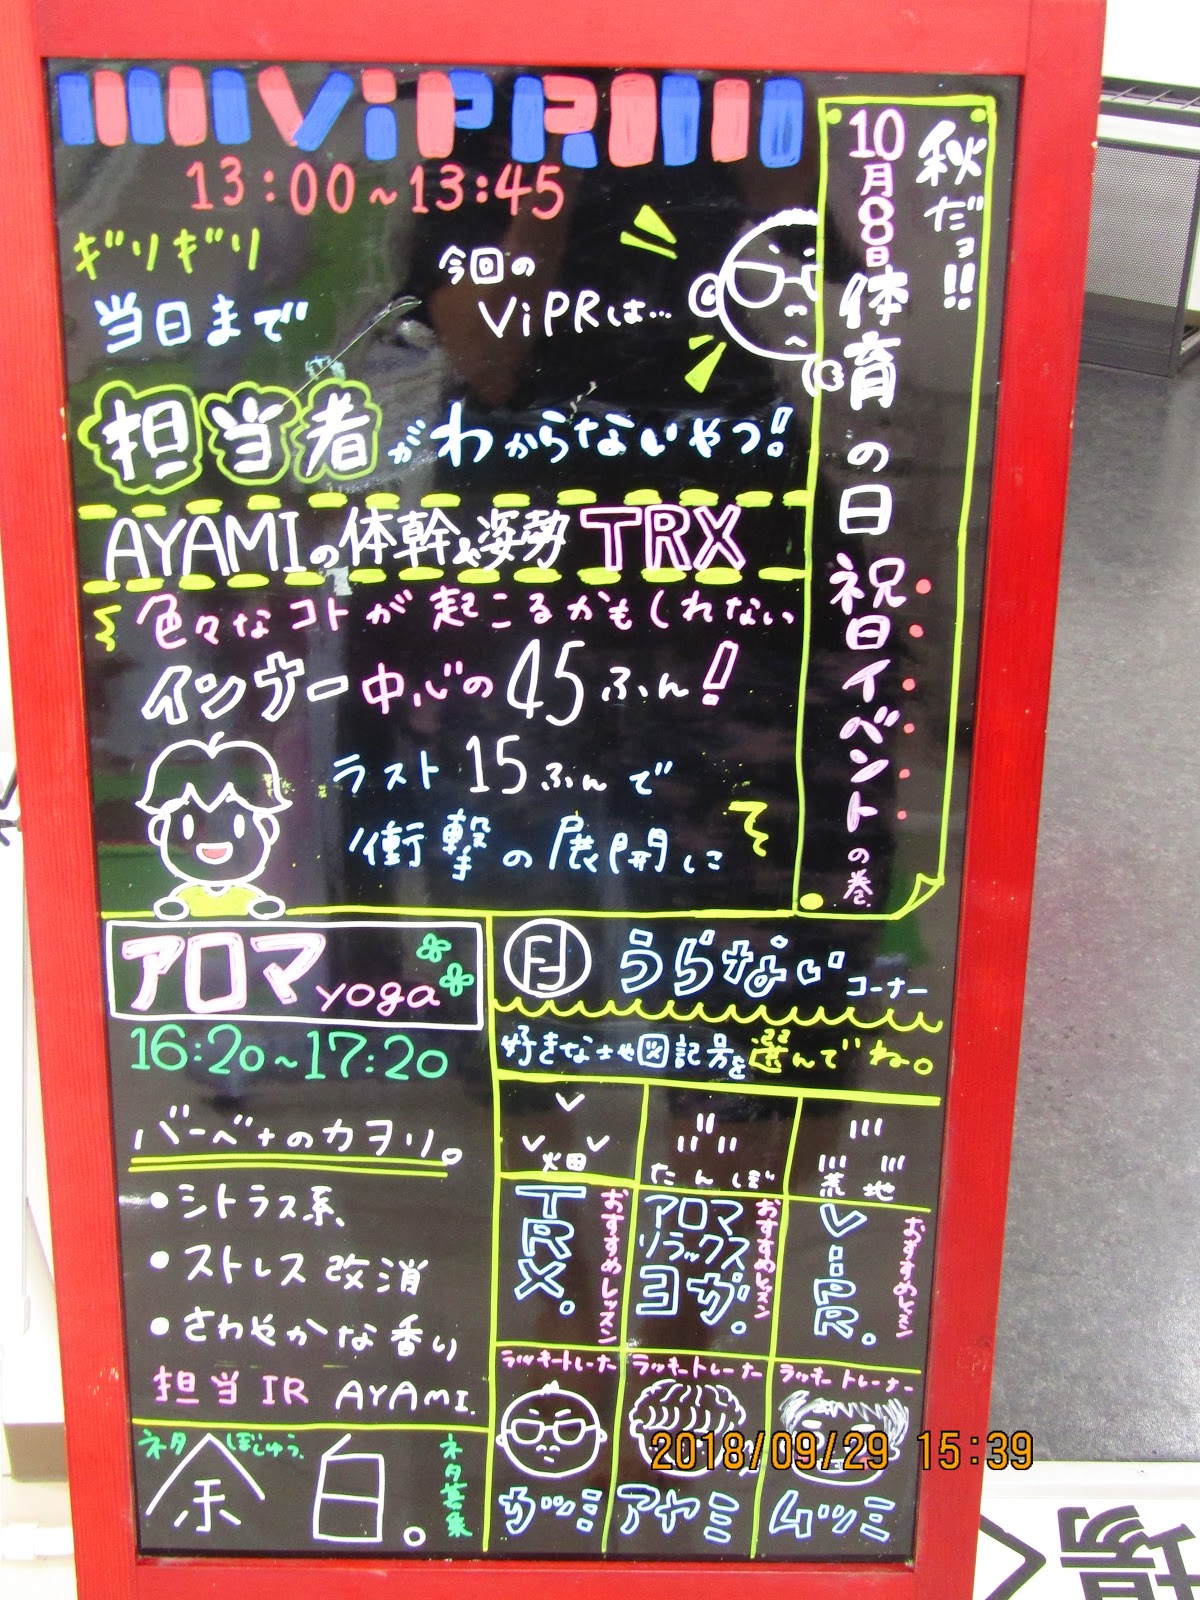 ViPR
13:00~13:45
秋だョ!!
10月8日体育の日祝日イベントの巻
ギリギリ
当日まで
今回の
ViPRは…
担当者がわからないやつ!
AYAMIの体幹や姿勢TRX
色々なコトが起こるかもしれない
インナー中心の45ふん!
ラスト15ふんで
衝撃の展開に
アロマyoga
16:20~17:20
バーベナのカヲリ。
・シトラス系
・ストレス改消
・さわやかな香り
担当IR AYAMI.
ネタぼしゅう。
余白。
ネタ募集
うらないコーナー
好きな地図記号を選んでね。
火田
たんぼ
荒地
TRX.
おすすめレッスン
アロマ
リラックス
ヨガ.
おすすめレッスン
ViPR.
おすすめレッスン
ラッキートレーナー
カツミ
ラッキートレーナー
アヤミ
ラッキートレーナー
ムツミ
2018/09/29 15:39
場